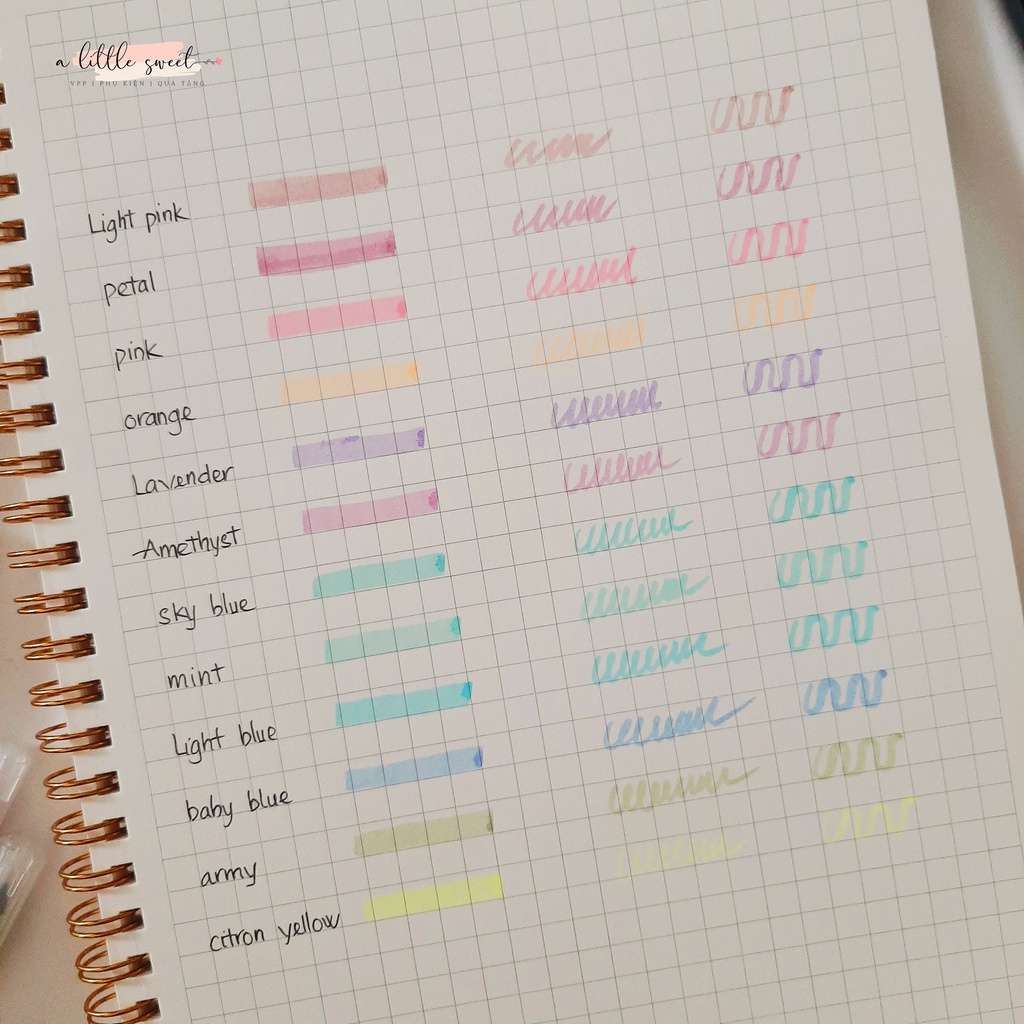 a little sweet
VPP | PHỤ KIỆN | QUÀ TẶNG
Light pink
petal
pink
orange
Lavender
Amethyst
sky blue
mint
Light blue
baby blue
army
citron yellow